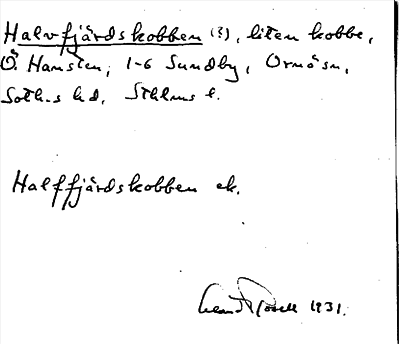 Halvfjärdskobben (3), liten kobbe,
Ö. Hansten, 1-6 Sundby, Ornö sn,
Soth.s hd, Sthlms l.
Halffjärdskobben ek.
1931.